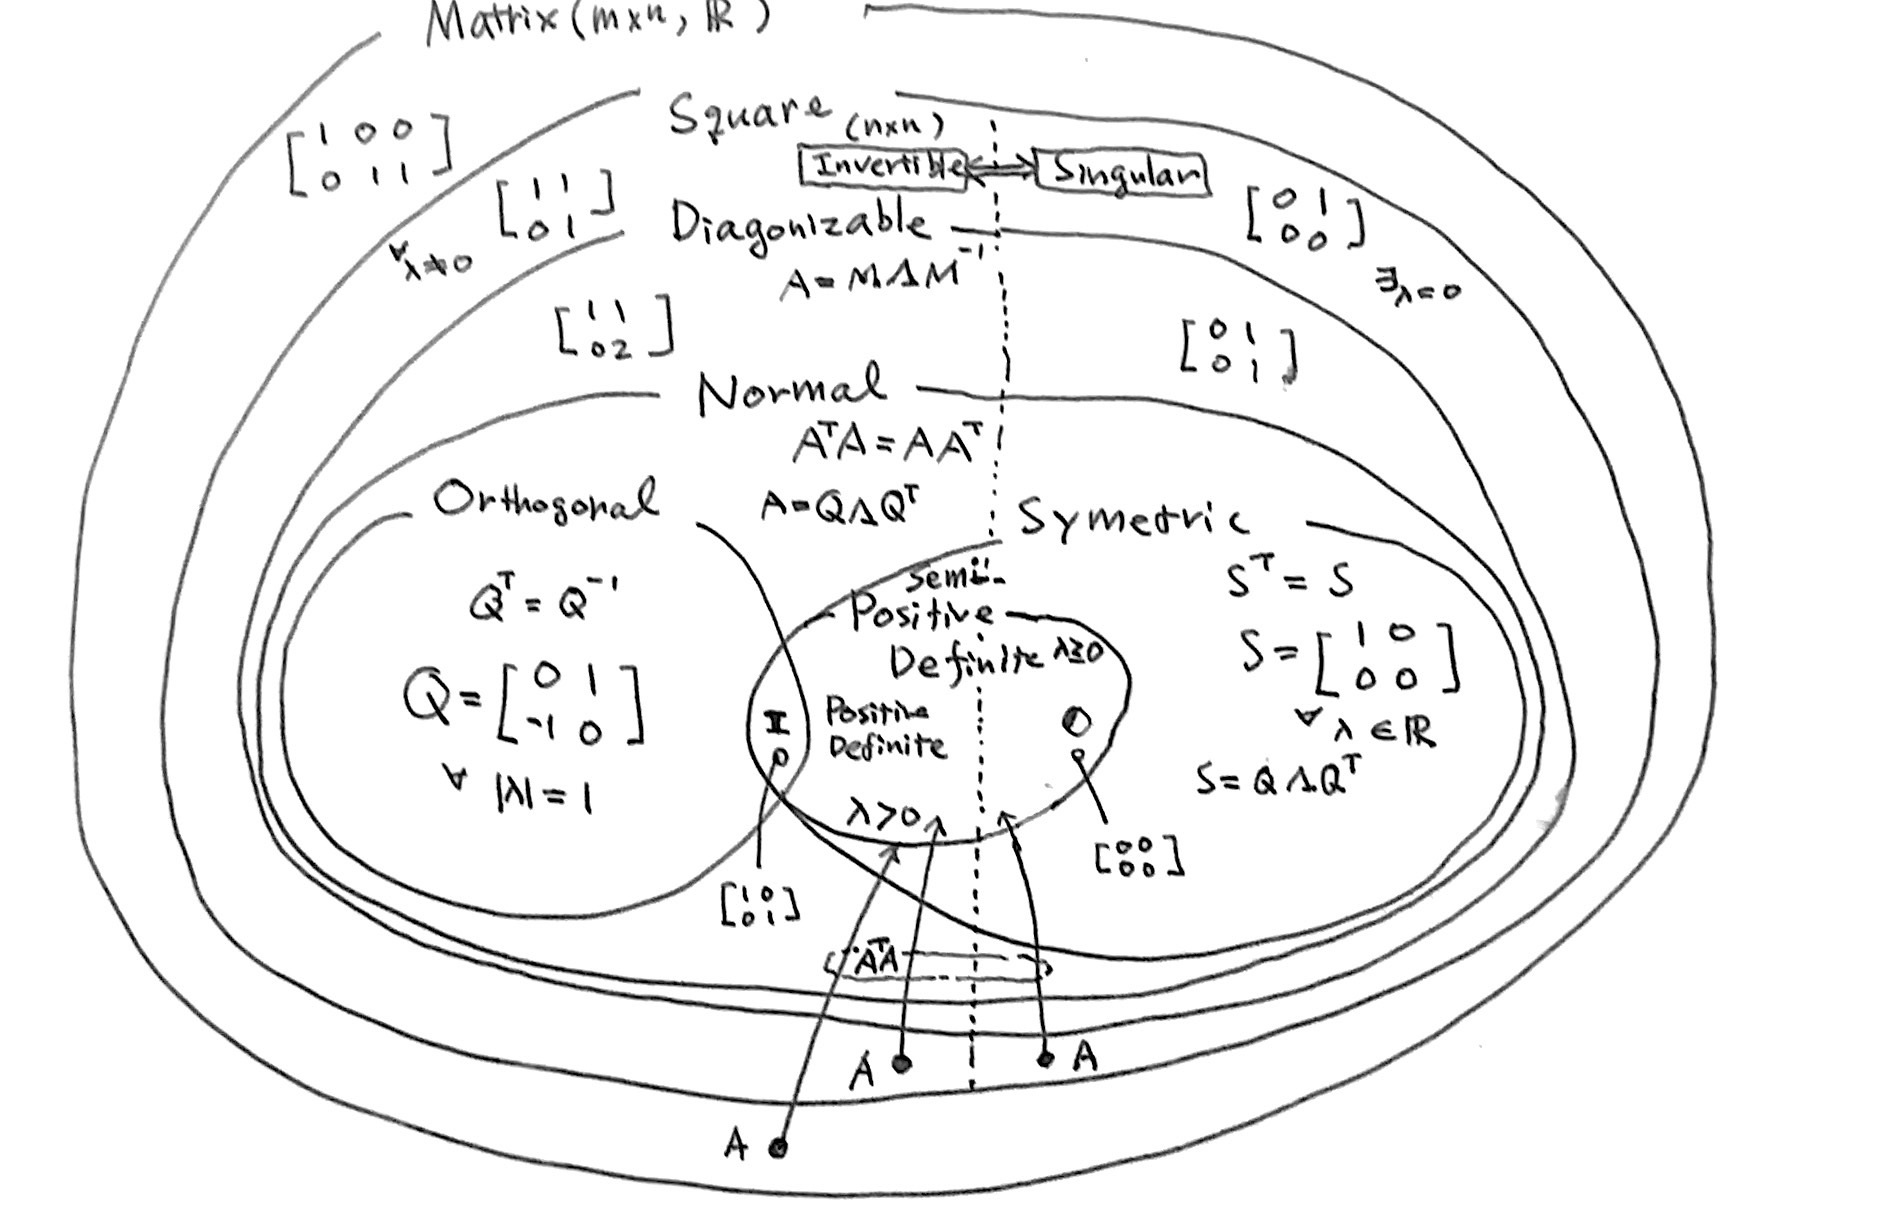 Matrix (m×n, ℝ)
Square (n×n)
[1 0 0
0 1 1]
Invertible ⟺ Singular
[1 1
0 1]
∀λ≠0
[0 1
0 0]
∃λ=0
Diagonizable
A = MΛM⁻¹
[1 1
0 2]
[0 1
0 1]
Normal
AᵀA = AAᵀ
A=QΛQᵀ
Orthogonal
Qᵀ = Q⁻¹
Q = [0 1
-1 0]
∀ |λ| = 1
Symetric
Sᵀ = S
S = [1 0
0 0]
∀ λ ∈ ℝ
S = QΛQᵀ
Semi-
Positive
Definite λ≥0
I
Positive
Definite
λ>0
O
[1 0
0 1]
[0 0
0 0]
AᵀA
A
A
A